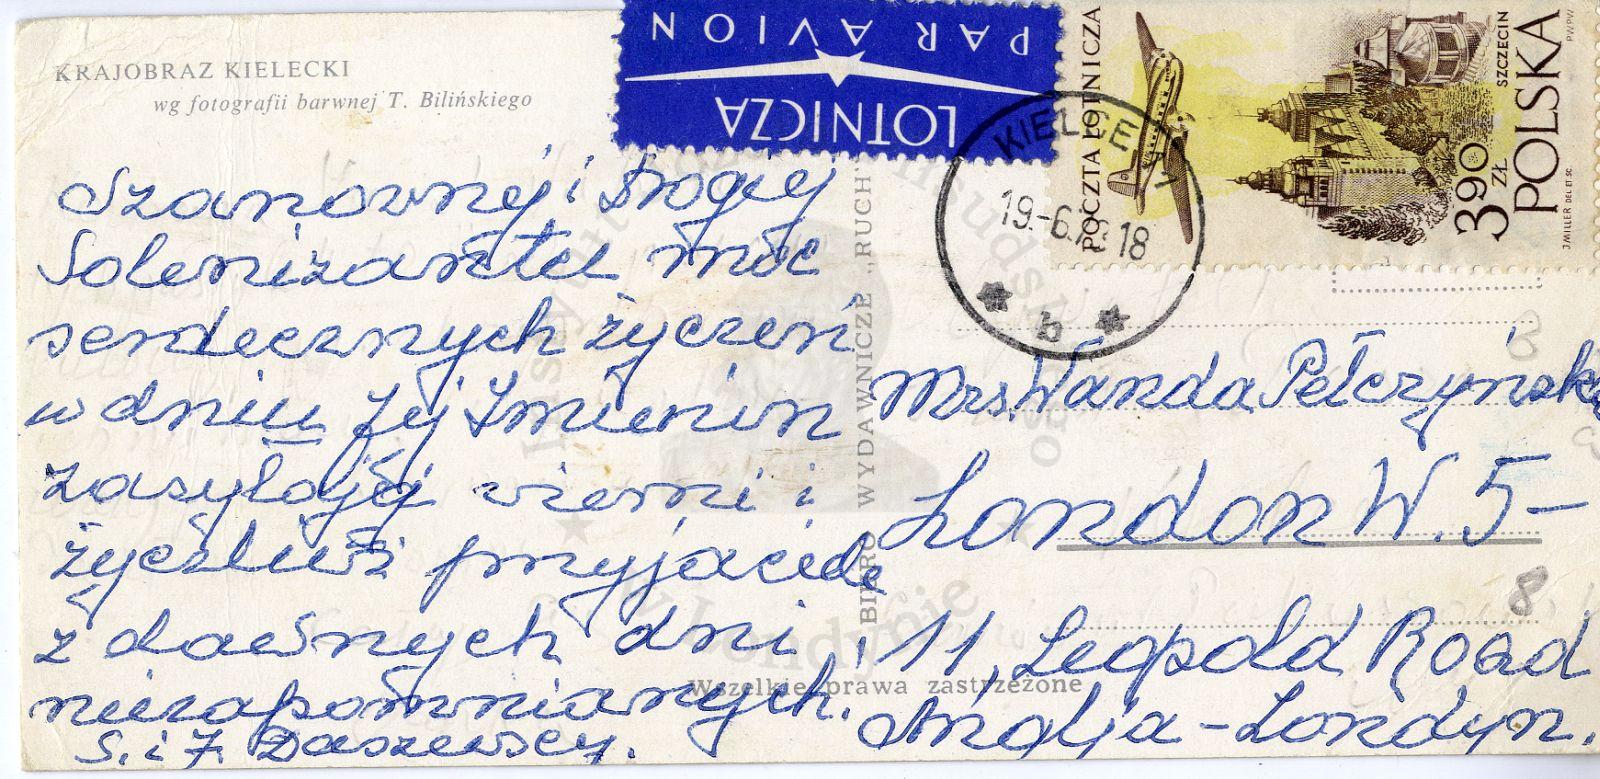 KRAJOBRAZ KIELECKI
wg fotografii barwnej T. Bilińskiego
Szanownej i Drogiej
Solenizantce moc
serdecznych życzeń
w dniu Jej Imienin
zasyłają wierni i
życzliwi przyjaciele
z dawnych dni
niezapomnianych.
S. i J. Daszewscy.
LOTNICZA
PAR AVION
BIURO WYDAWNICZE „RUCH"
Wszelkie prawa zastrzeżone
POCZTA LOTNICZA
SZCZECIN
3,90 ZŁ
POLSKA
PWPW
J.MILLER DEL ET SC.
KIELCE 1
18
b
Mrs. Wanda Pełczyńska
London W. 5 –
11, Leopold Road
Anglja – Londyn.
8
Instytut Józefa Piłsudskiego
w Londynie